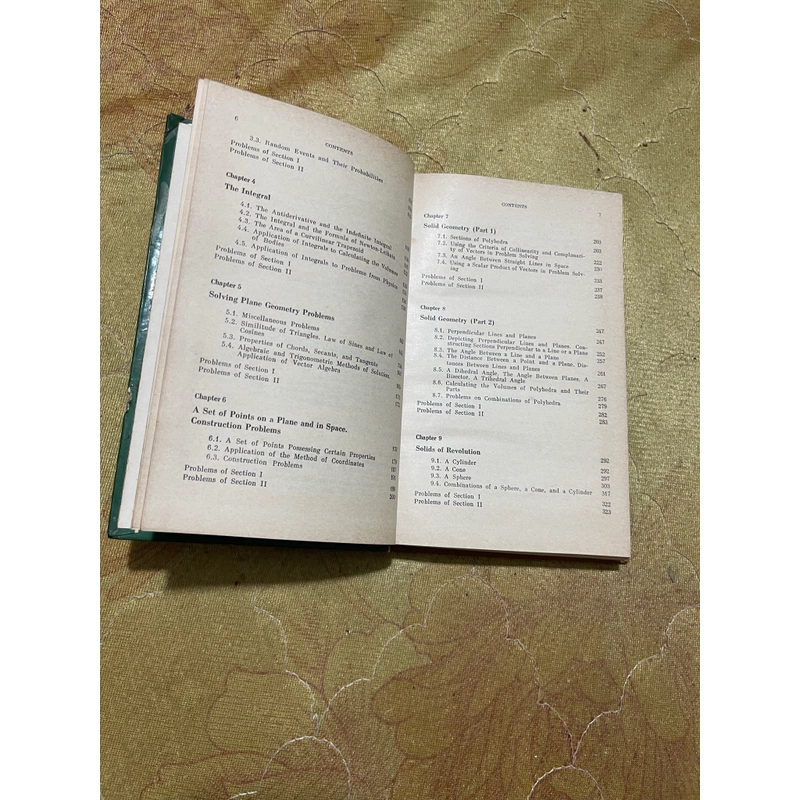 6
CONTENTS
5.3. Random Events and Their Probabilities
Problems of Section I
Problems of Section II
Chapter 4
The Integral
4.1. The Antiderivative and the Indefinite Integral
4.2. The Integral and the Formula of Newton-Leibniz
4.3. The Area of a Curvilinear Trapezoid
4.4. Application of Integrals to Calculating the Volumes
of Bodies
4.5. Application of Integrals to Problems from Physics
Problems of Section I
Problems of Section II
Chapter 5
Solving Plane Geometry Problems
5.1. Miscellaneous Problems
5.2. Similitude of Triangles. Law of Sines and Law of
Cosines
5.3. Properties of Chords, Secants, and Tangents
5.4. Algebraic and Trigonometric Methods of Solution.
Application of Vector Algebra
Problems of Section I
Problems of Section II
Chapter 6
A Set of Points on a Plane and in Space.
Construction Problems
6.1. A Set of Points Possessing Certain Properties
6.2. Application of the Method of Coordinates
6.3. Construction Problems
Problems of Section I
Problems of Section II 200
CONTENTS 7
Chapter 7
Solid Geometry (Part 1)
7.1. Sections of Polyhedra 203
7.2. Using the Criteria of Collinearity and Complanari-
ty of Vectors in Problem Solving 222
7.3. An Angle Between Straight Lines in Space 230
7.4. Using a Scalar Product of Vectors in Problem Solv-
ing 233
Problems of Section I 237
Problems of Section II 239
Chapter 8
Solid Geometry (Part 2) 247
8.1. Perpendicular Lines and Planes 247
8.2. Depicting Perpendicular Lines and Planes. Con-
structing Sections Perpendicular to a Line or a Plane 252
8.3. The Angle Between a Line and a Plane 257
8.4. The Distance Between a Point and a Plane. Dis-
tances Between Lines and Planes 261
8.5. A Dihedral Angle. The Angle Between Planes. A
Bisector. A Trihedral Angle 267
8.6. Calculating the Volumes of Polyhedra and Their
Parts 276
8.7. Problems on Combinations of Polyhedra 279
Problems of Section I 282
Problems of Section II 283
Chapter 9
Solids of Revolution 292
9.1. A Cylinder 292
9.2. A Cone 297
9.3. A Sphere 303
9.4. Combinations of a Sphere, a Cone, and a Cylinder 317
Problems of Section I 322
Problems of Section II 323